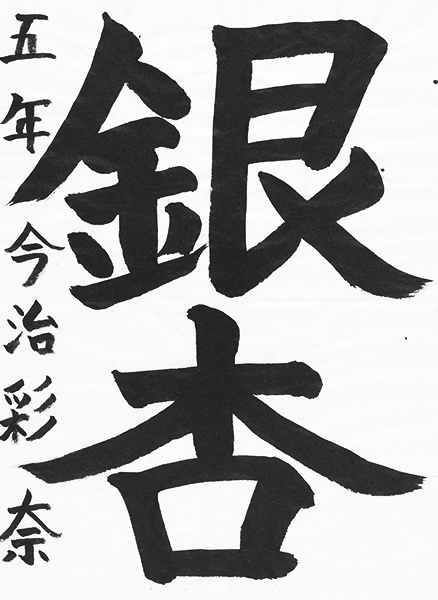 銀杏
五年 今治彩奈